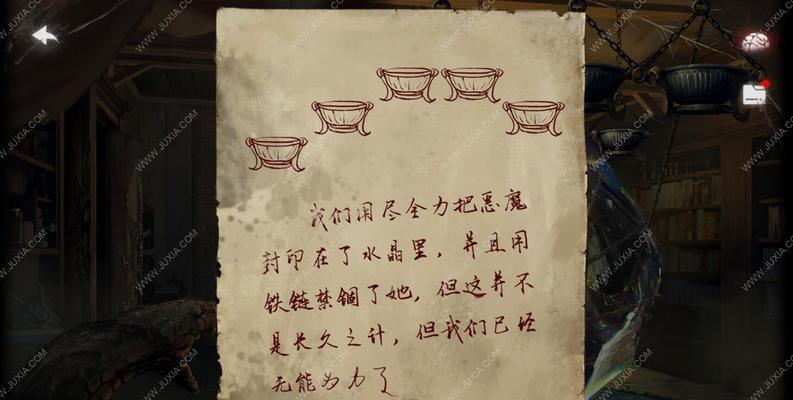 我们用尽全力把恶魔
封印在了水晶里，并且用
铁链禁锢了她，但这并不
是长久之计，但我们已经
无能为力了
WWW.JUXIA.COM